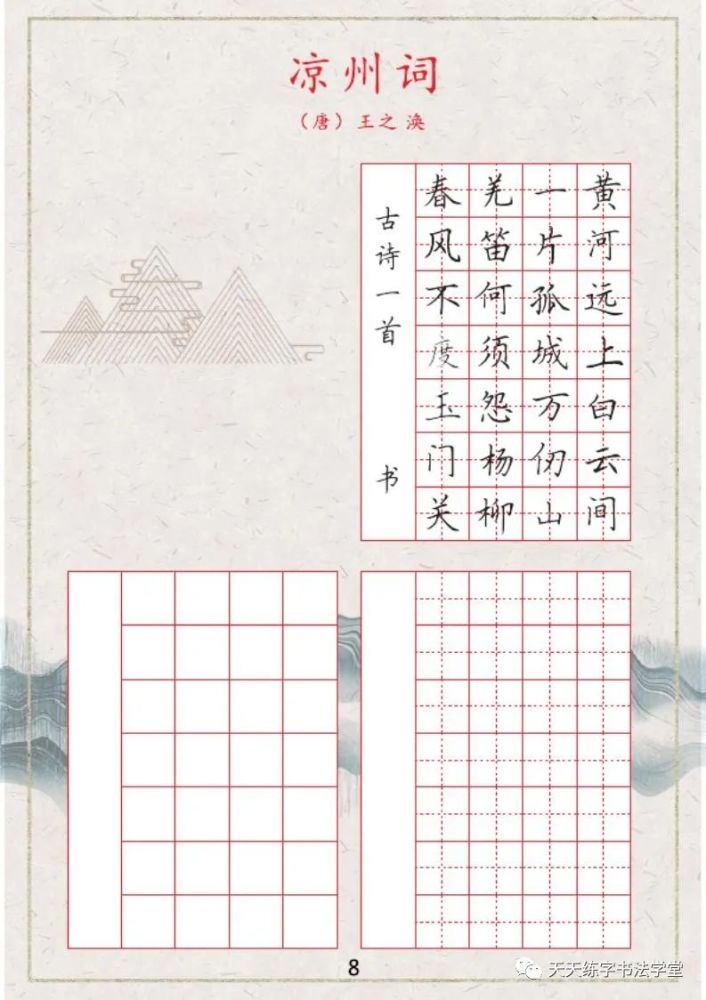 凉州词
（唐）王之 涣
黄河远上白云间
一片孤城万仞山
羌笛何须怨杨柳
春风不度玉门关
古诗一首 书
8
天天练字书法学堂